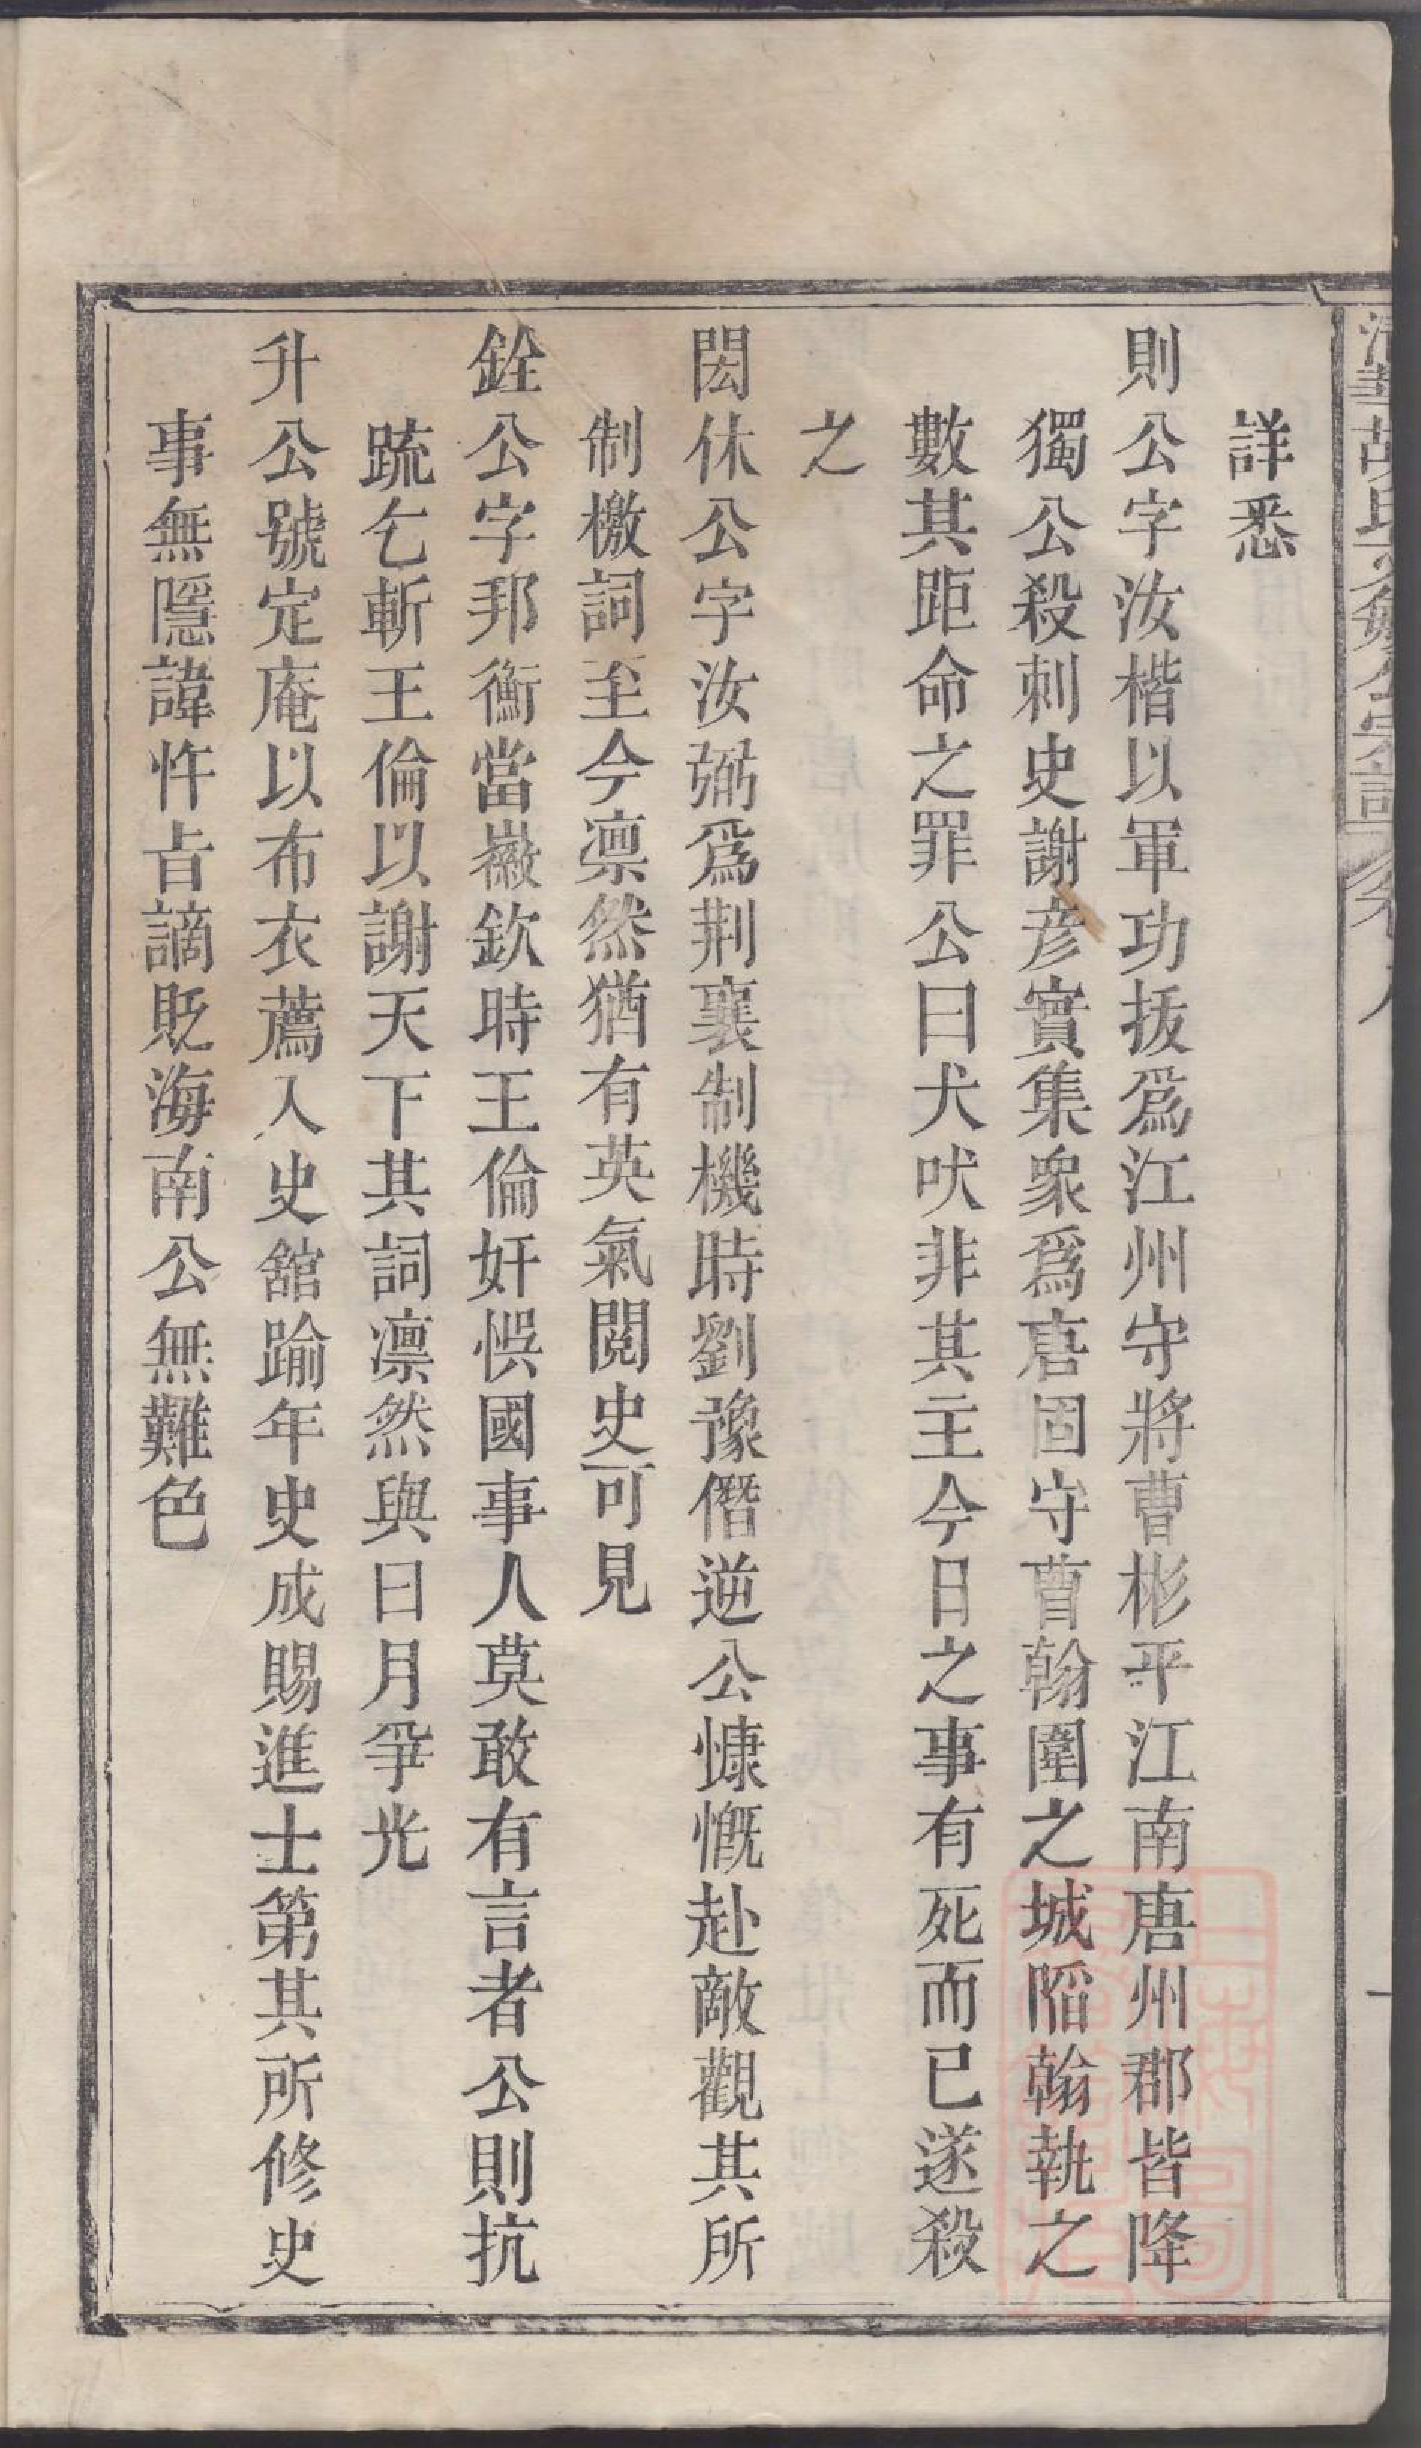 詳悉
則公字汝楷以軍功拔爲江州守將曹彬平江南唐州郡皆降
獨公殺刺史謝彦實集衆爲唐固守曹翰圍之城陷翰執之
數其距命之罪公曰犬吠非其主今日之事有死而已遂殺
之
閎休公字汝弼爲荆襄制機時劉豫僭逆公慷慨赴敵觀其所
制檄詞至今凛然猶有英氣閱史可見
銓公字邦衡當嶶欽時王倫奸悞國事人莫敢有言者公則抗
䟽乞斬王倫以謝天下其詞凛然與日月爭光
升公號定庵以布衣薦入史舘踰年史成賜進士第其所修史
事無隱諱忤㫖謫貶海南公無難色